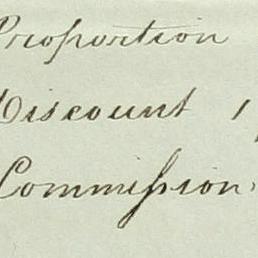 Proportion
Discount 1
Commission